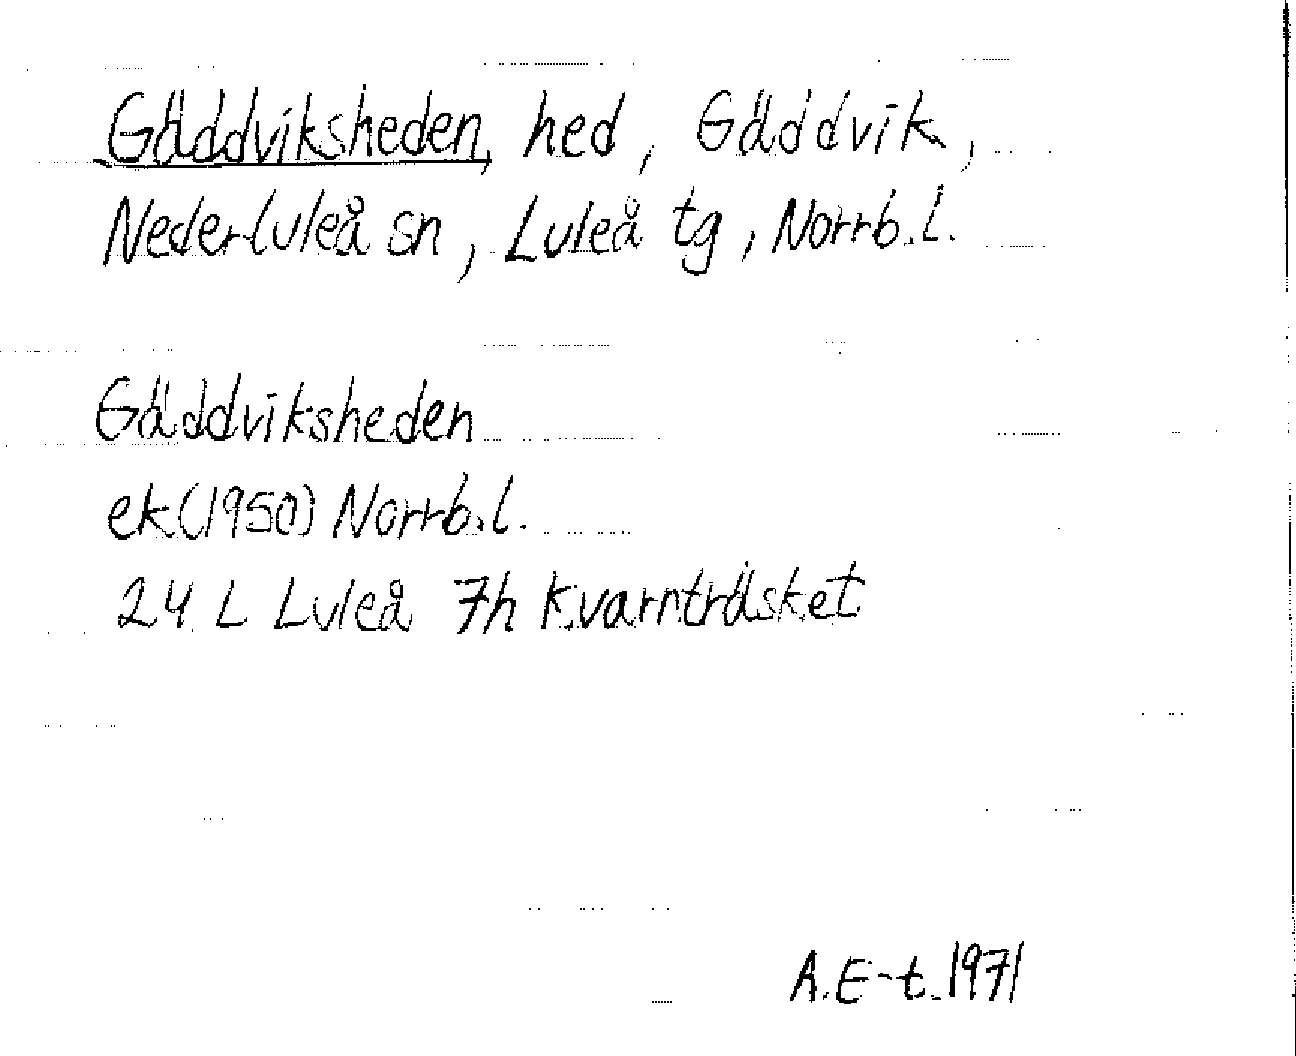 Gäddviksheden, hed, Gäddvik,
Nederluleå sn, Luleå tg, Norrb.l.
Gäddviksheden
ek(1950) Norrb.l.
24 L Luleå 7h Kvarnträsket
A.E-t. 1971